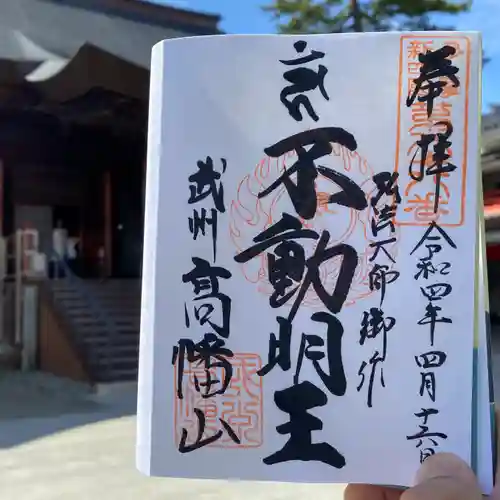 奉拝
令和四年四月十六日
弘法大師御作
不動明王
武州 高幡山